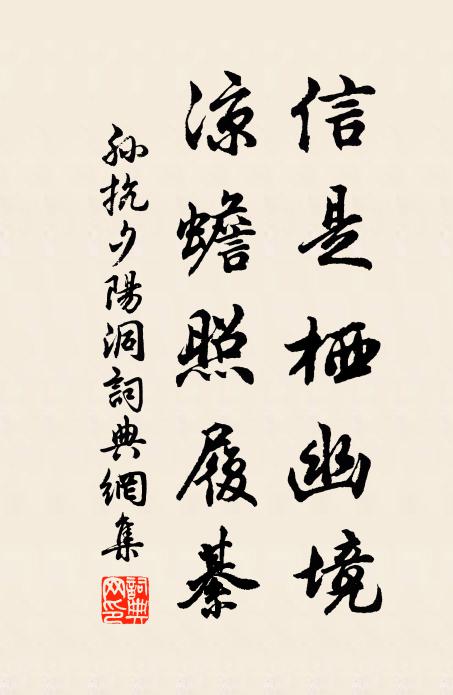 信是栖幽境
凉蟾照履綦
孙抗夕陽洞詞典網集
詞典網印